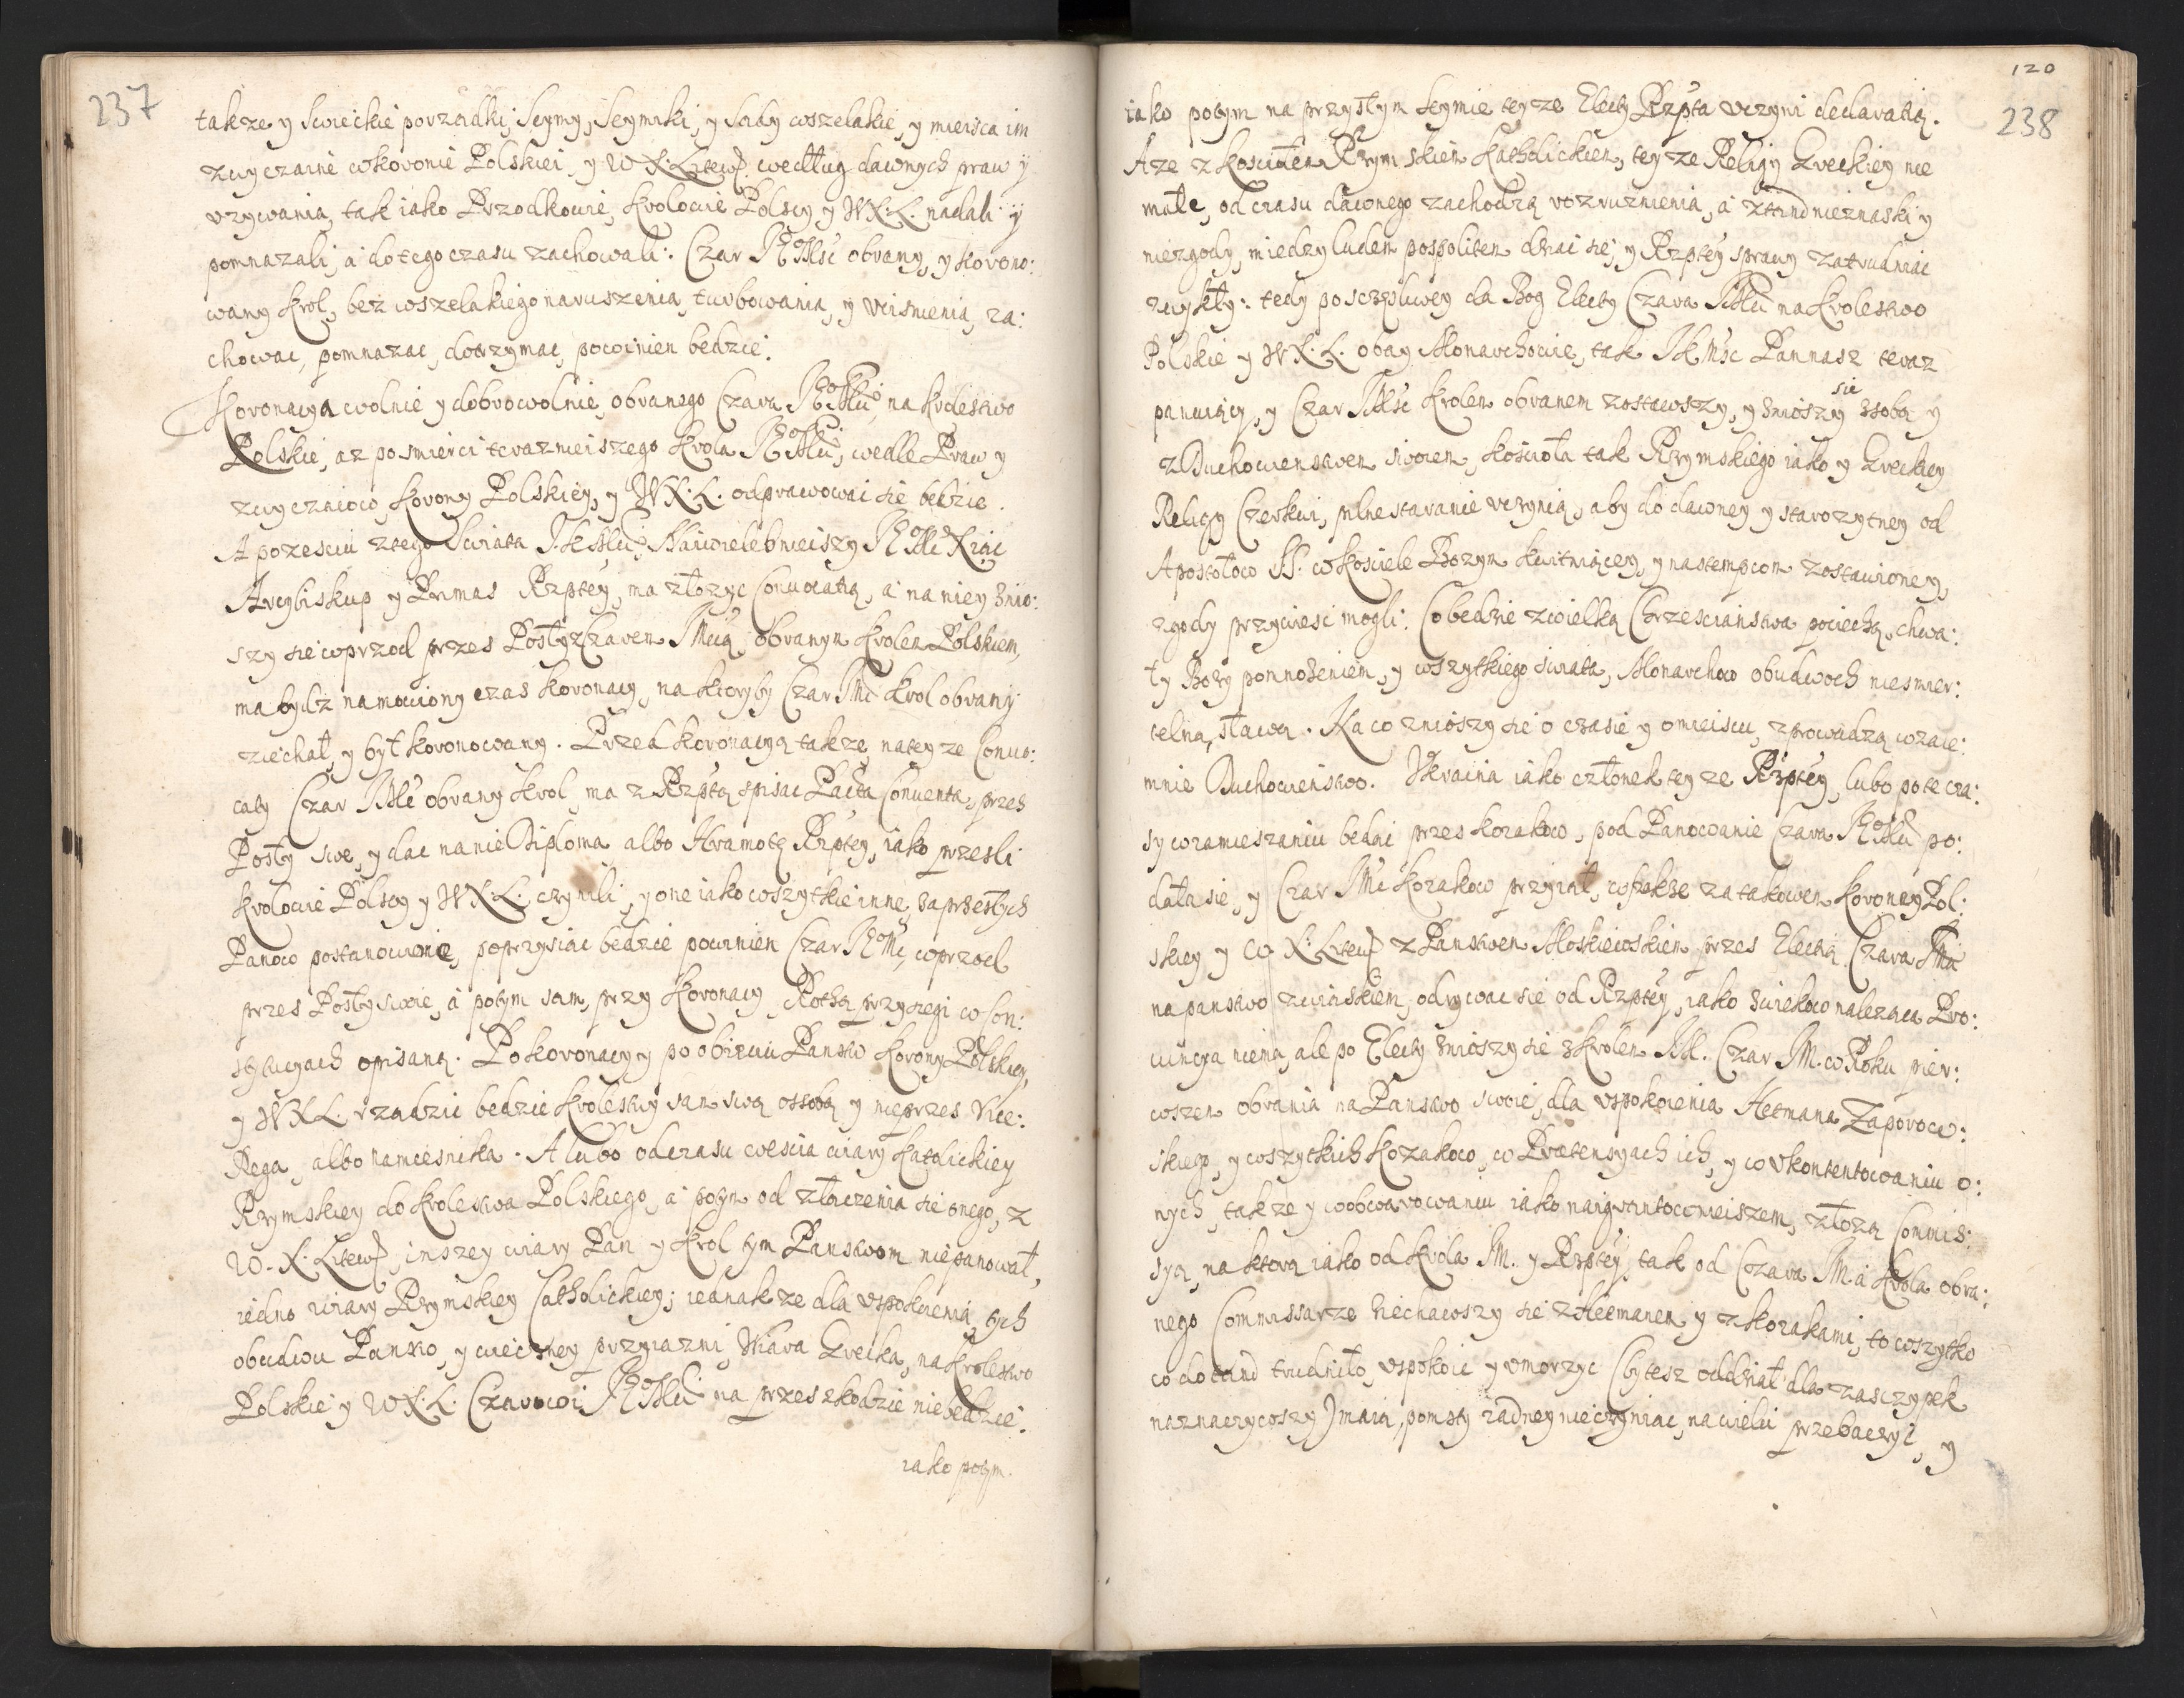 237
takze y Swieckie porzadki, Seymy, Seymiki, y Sądy wszelakie, y mieisca im
zwyczaine wkoronie Polskiei, y W X. Litew. według dawnych praw y
vzywania, tak iako Przodkowie, Krolowie Polscy y WX.L. nadali y
pomnazali, a do tego czasu zachowali. Czar Mść obrany, y korono:
wany Krol, bez wszelakiego naruszenia, turbowania, y vcisnienia, za:
chowac, pomnazac, dotrzymac, powinien bedzie.
Koronacya wolnie y dobrowolnie obranego Czara na Krolestwo
Polskie, az po smierci terazniejszego Krola wedle Praw y
zwyczaiow Korony Polskiey, y WX.L. odprawowac sie bedzie.
A po zesciu ztego Swiata Naiwielebnieiszy Xiąc
Arcybiskup y Primas Rzptey, ma złozyc Convocatią, a na niey znio:
szy sie wprzod przes Posły z Czarem Mcią obranym Krolem Polskiem,
ma bydz namowiony czas Koronacy, na ktoryby Czar Mc Krol obrany
ziechał, y był koronowany. Przed Koronacyą takze, na tey ze Convo:
caty Czar Mść obrany Krol, ma z Rzptą spisac Pacta Conventa, przes
Posły swe, y dac na nie Diploma albo Hramotę Rzptey, iako przesli
Krolowie Polscy y WX.L. czynili, y one iako wszytkie inne, zaprzeszłych
Panow postanowione, poprzysiac bedzie powinien Czar wprzod
przes Posły swoie, a potym sam, przy Koronacy, Rothą przysiegi w Con:
stytucyach opisaną. Po koronacy y po obięciu Panstw Korony Polskiey,
y WXL. rzadzic bedzie Krolestwy sam swą ossobą y nie przes Vice:
Rega, albo namiesnika. A lubo od czasu wescia wiary Katolickiey
Rzymskiey do Krolestwa Polskiego, a potym od złaczenia sie onego, z
W. X. Litew, inszey wiary Pan y Krol tym Panstwom nie panował,
iedno wiary Rzymskiey Catholickiey; iednak ze dla vspokoienia tych
obudwu Panstw, y wieczney przyiazni, Wiara Grecka, na Krolestwo
Polskie y WX.L. Czarowi na przeszkodzie nie bedzie.
iako potym.
120
238
iako potym na przyszłym Seymie teyze Electy Rzpta vczyni declaratią.
A ze z Kosciołem Rzymskiem Katholickiem, teyze Religy Greckiey nie
małe, od czasu dawnego zachodzą rozruznienia, a ztąnd nieznaski y
niezgody, miedzy ludem pospolitem dziac sie, y Rzptey sprawy zatrudniac
zwykły: tedy po sczęsliwey da Bog Electy Czara na Krolestwo
Polskie y WX.L. obay Monarchowie, tak Pan nasz teraz
panuiący, y Czar Krolem obranem zostawszy, y zniószy sie zsobą y
z Duchowienstwem swoiem, kościoła tak Rzymskiego iako y Greckiey
Religy Czerkwi, pilne staranie vczynią, aby do dawney y starozytney od
Apostołow SS. w Kosciele Bozym kwitniącey, y nastempcom zostawioney,
zgody przywiesc mogli. Co bedzie z wielką Chrzescianstwa pociechą, chwa:
ły Bozy pomnożeniem, y wszytkiego swiata, Monarchow obudwoch niesmier:
telną sławą. Na co zniószy sie o czasie y o mieiscu, zprowadzą wzaie:
mnie Duchowieństwo. Vkraina iako członek teyze Rzptey, lubo po te cza:
sy w zamieszaniu bedąc przes Kozakow, pod Panowanie Czara po:
dała sie, y Czar Mc Kozakow przyiął, wszakze za takowem Korony Pol:
skiey y W X. Litew z Panstwem Moskiewskiem przes Electią Czara
na panstwo zwiąskiem, odrywac sie od Rzptey, iako zwiekow nalezaca Pro:
wincya niema, ale po Electy zniószy sie z Krolem Czar w Roku pier:
wszem obrania na Panstwo swoie, dla vspokoienia Hetmana Zaporow:
skiego, y wszytkich Kozakow, w Praetensyach ich, y w vkontentowaniu o:
nych, takze y w obwarowaniu iako naigruntownieiszem, złozą Commis:
syą, na ktorą iako od Krola y Rzptey, tak od Czara a Krola obra:
nego Commissarze ziechawszy sie z Hetmanem y z Kozakami, to wszytko
co dotąnd trudniło, vspokoic y vmorzyc (bytesz oddział dla zasczypek
naznaczywszy) maią, pomsty zadney nie czyniac, na wieki przebaczyć, y